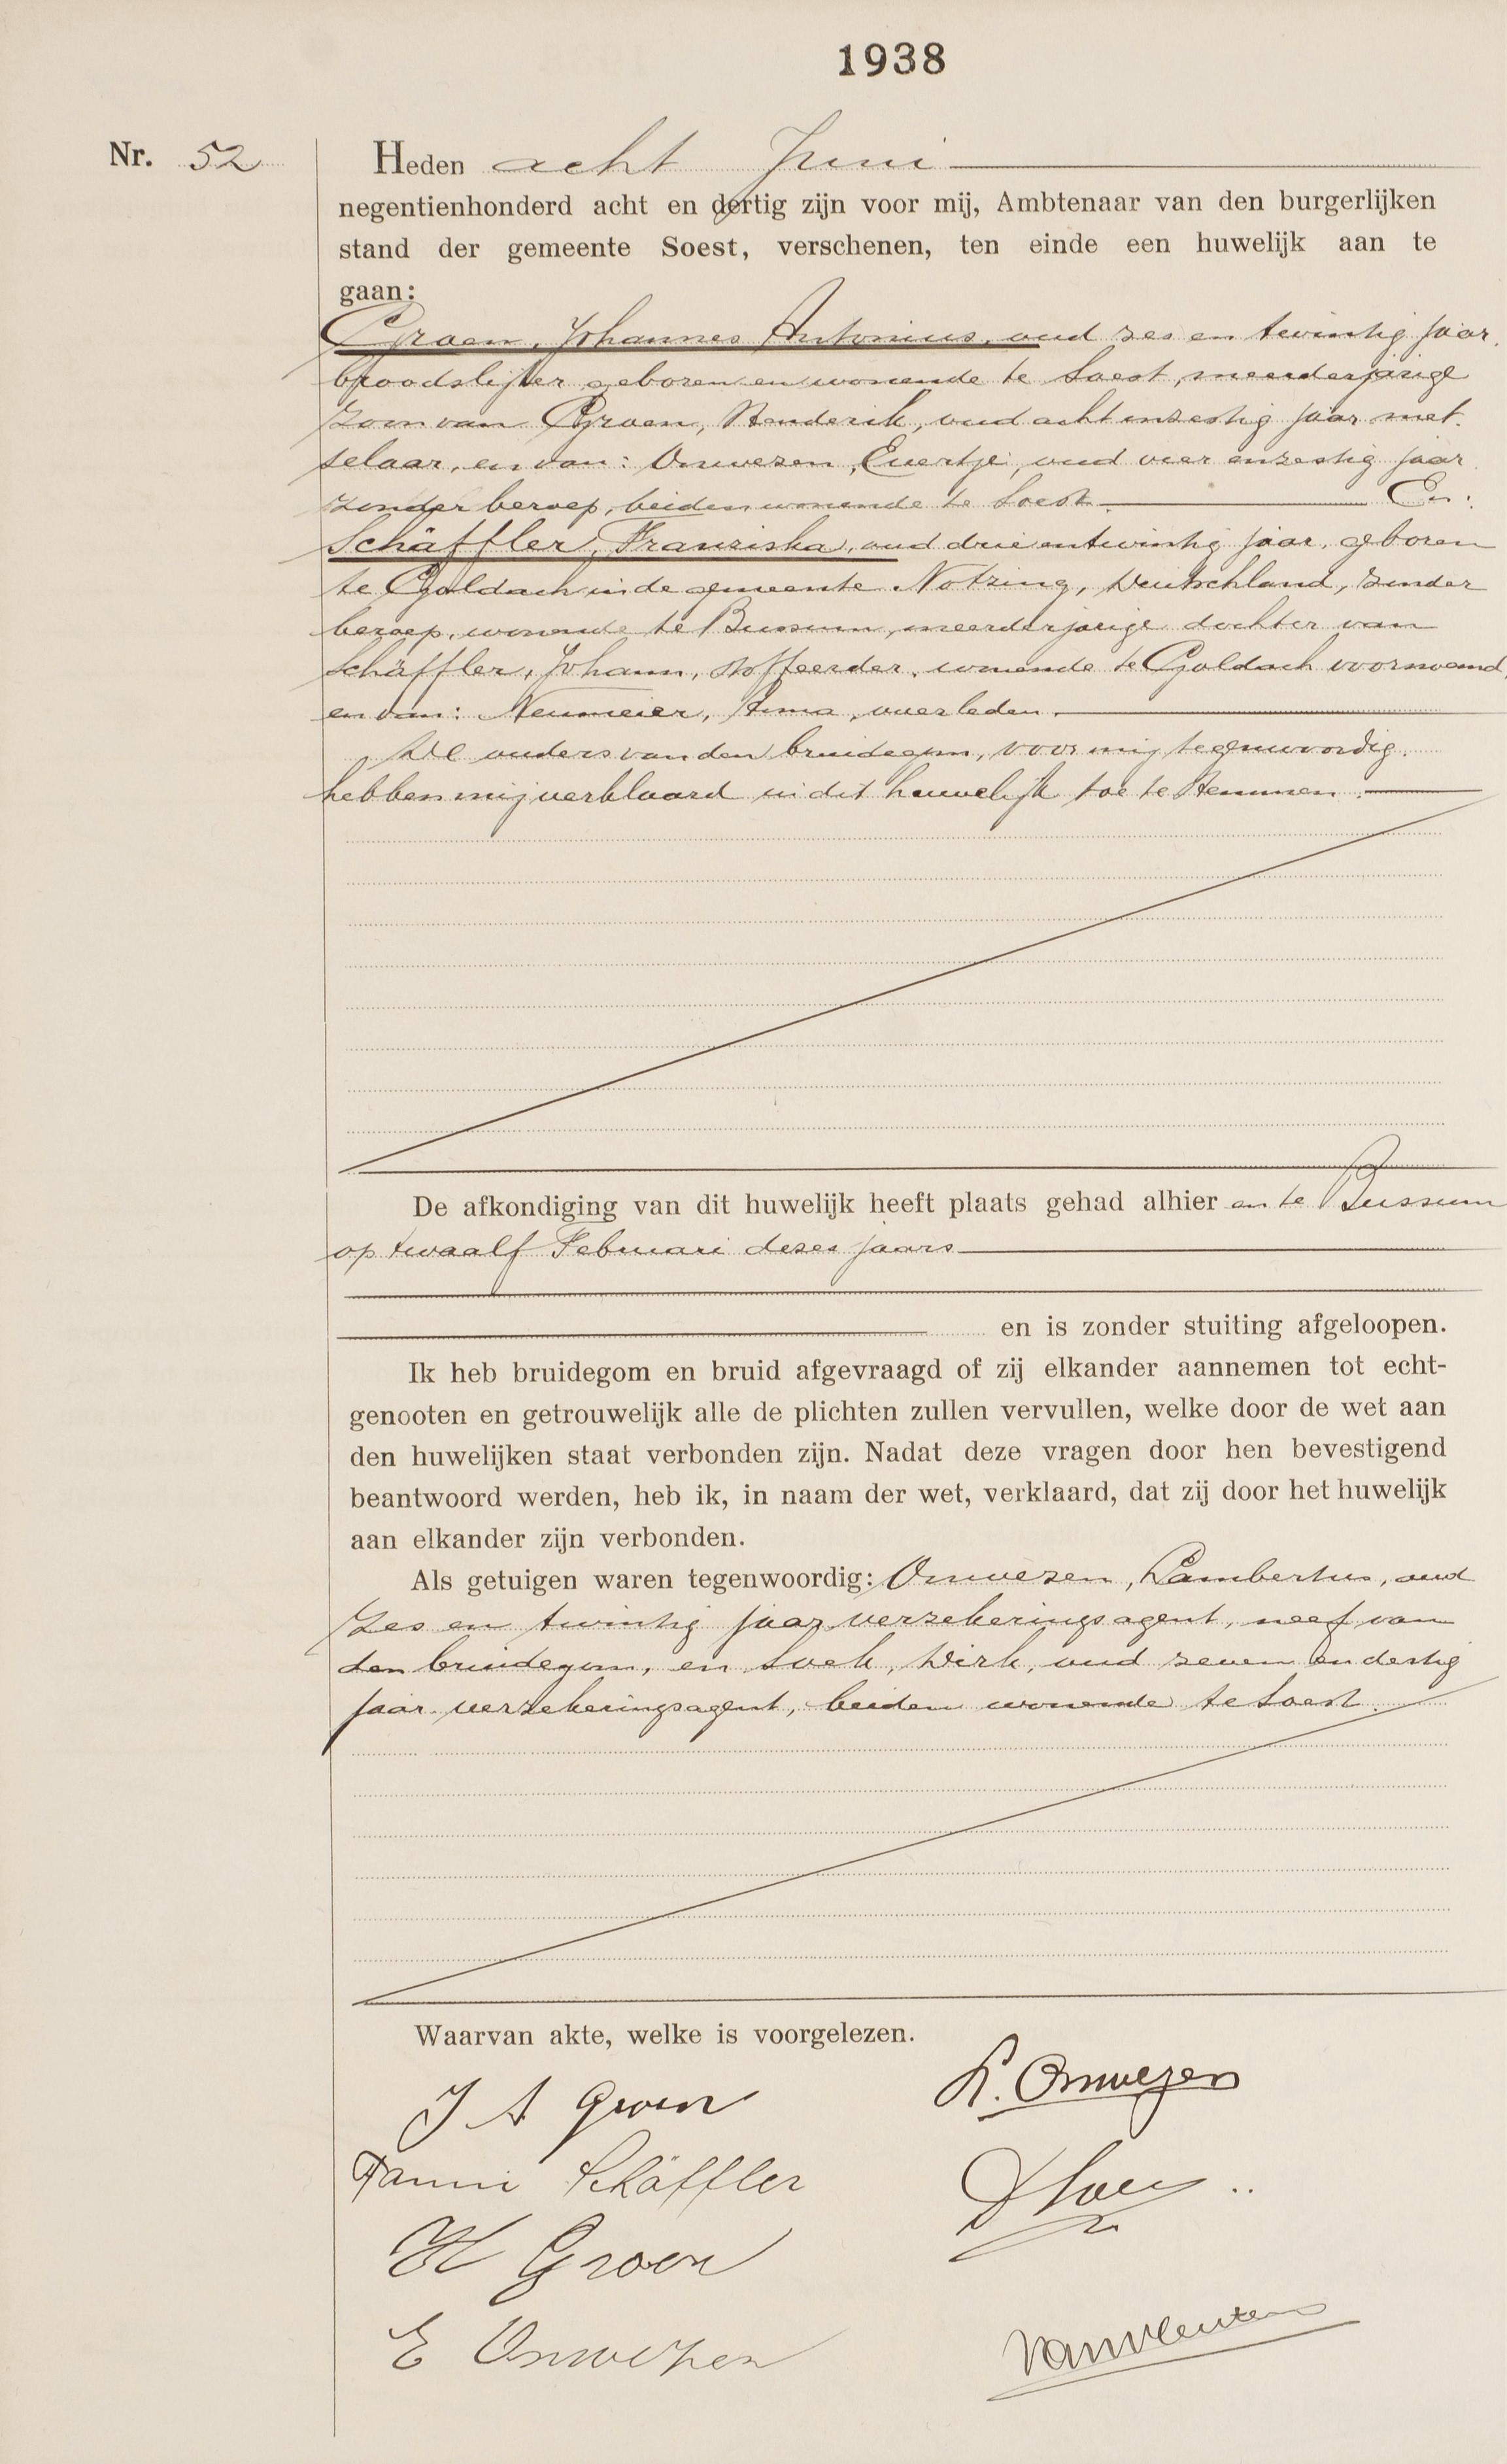 1938
Nr. 52
Heden acht Juni
negentienhonderd acht en dertig zijn voor mij, Ambtenaar van den burgerlijken
stand der gemeente Soest, verschenen, ten einde een huwelijk aan te
gaan:
Groen, Johannes Antonius, oud zes en twintig jaar,
broodslijter geboren en wonende te Soest, meerderjarige
zoon van Groen, Henderik, oud acht en zestig jaar met-
selaar, en van: Onwezen, Evertje, oud vier en zestig jaar
zonder beroep, beiden wonende te Soest. En:
Schäffler, Franziska, oud drie en twintig jaar, geboren
te Goldach in de gemeente Notzing, Deutschland, zonder
beroep, wonende te Bussum, meerderjarige dochter van
Schäffler, Johann, stoffeerder, wonende te Goldach voornoemd,
en van: Neumeier, Anna, overleden.
De ouders van den bruidegom, voor mij tegenwoordig,
hebben mij verklaard in dit huwelijk toe te stemmen.
De afkondiging van dit huwelijk heeft plaats gehad alhier en te Bussum
op twaalf Februari dezes jaars
en is zonder stuiting afgeloopen.
Ik heb bruidegom en bruid afgevraagd of zij elkander aannemen tot echt-
genooten en getrouwelijk alle de plichten zullen vervullen, welke door de wet aan
den huwelijken staat verbonden zijn. Nadat deze vragen door hen bevestigend
beantwoord werden, heb ik, in naam der wet, verklaard, dat zij door het huwelijk
aan elkander zijn verbonden.
Als getuigen waren tegenwoordig: Onwezen, Lambertus, oud
zes en twintig jaar verzekeringsagent, neef van
den bruidegom, en Hoek, Dirk, oud zeven en dertig
jaar verzekeringsagent, beiden wonende te Soest.
Waarvan akte, welke is voorgelezen.
J A Groen
L. Onwezen
Fanni Schäffler
H Groen
E Onwezen